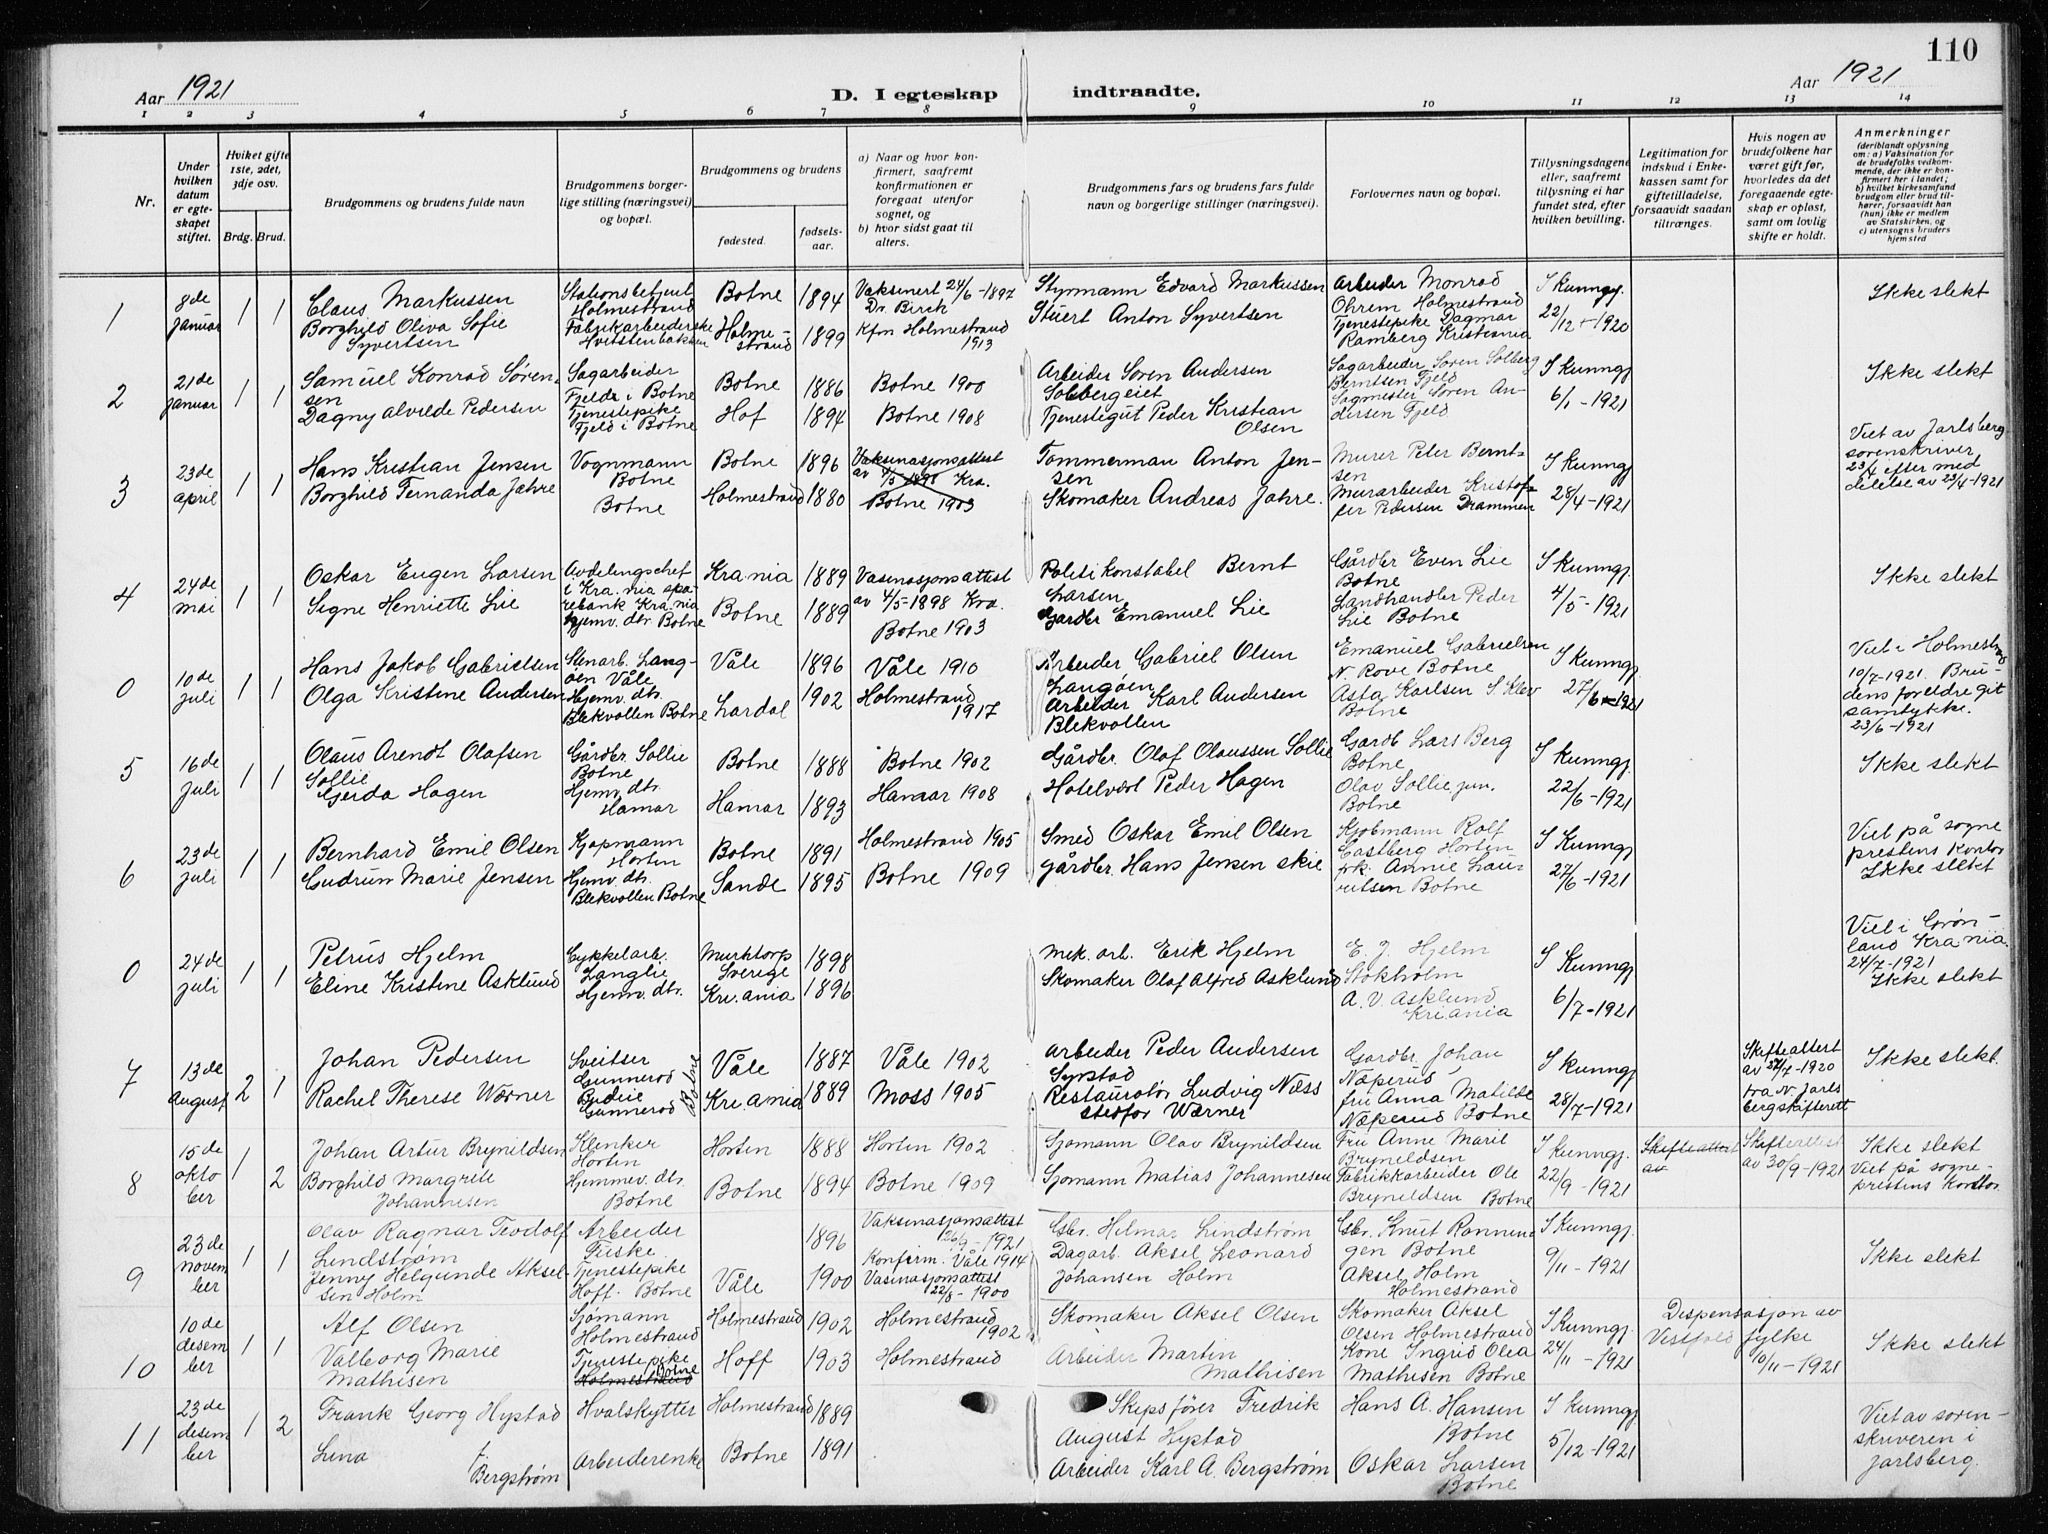 110
Aar 1921
D. I egteskap indtraadte.
Aar 1921
1 2 3 4 5 6 7 8 9 10 11 12 13 14
Nr.
Under hvilken datum er egteskapet stiftet.
Hviket gifte 1ste, 2det, 3dje osv.
Brdg. Brud.
Brudgommens og brudens fulde navn
Brudgommens borgerlige stilling (næringsvei) og bopæl.
Brudgommens og brudens
fødested.
fødselsaar.
a) Naar og hvor konfirmert, saafremt konfirmationen er foregaat utenfor sognet, og
b) hvor sidst gaat til alters.
Brudgommens fars og brudens fars fulde navn og borgerlige stillinger (næringsvei).
Forlovernes navn og bopæl.
Tillysningsdagene eller, saafremt tillysning ei har fundet sted, efter hvilken bevilling.
Legitimation for indskud i Enkekassen samt for giftetilladelse, forsaavidt saadan tiltrænges.
Hvis nogen av brudefolkene har været gift før, hvorledes da det foregaaende egteskap er opløst, samt om lovlig skifte er holdt.
Anmerkninger
(deriblandt oplysning om: a) Vaksination for de brudefolks vedkommende, der ikke er konfirmert her i landet;
b) hvilket kirkesamfund brudgom eller brud tilhører, forsaavidt han (hun) ikke er medlem av Statskirken, og
c) utensogns bruders hjemsted
1 8de Januar 1 1
Claus Markussen
Borghild Oliva Sofie Syvertsen
Stationsbetjent Holmestrand
Fabrikarbeiderske Hvitstenbakken
Botne 1894 Vaksinert 24/6-1897 Dr. Birck
Holmestrand 1899 Kfm Holmestrand 1913
Styrmann Edvard Markussen
Stuert Anton Syvertsen
Arbeider Monrad Ohrem Holmestrand
Tjenestepike Dagmar Ramberg Kristiania
I Kunngj. 22/12-1920
Ikke slekt
2 21de Januar 1 1
Samuel Konrad Sørensen
Dagny Alvilde Pedersen
Sagarbeider Fjeld i Botne
Tjenestepike Fjeld i Botne
Botne 1886 Botne 1900
Hof 1894 Botne 1908
Arbeider Søren Andersen Solbergeiet
Tjenestegut Peder Kristian Olsen
Sagarbeider Søren Solberg Berntsen Fjeld
Sagmester Søren Andersen Fjeld
I Kunngj 6/1-1921
Ikke slekt
3 23de april 1 1
Hans Kristian Jensen
Borghild Fernanda Jahre
Vognmann Botne
Botne
Botne 1896 Vaksinasjonsattest av 4/5 1898 Kra.
Holmestrand 1880 Botne 1903
Tømmerman Anton Jensen
Skomaker Andreas Jahre.
Murer Peter Berntsen
Murarbeider Kristoffer Pedersen Drammen
I Kunngj 28/4-1921
Viet av Jarlsberg sorenskriver 23/4 efter meddelelse av 23/4-1921
4 24de mai 1 1
Oskar Eugen Larsen
Signe Henriette Lie
Avdelingschef i Kra.nia sparebank Kra.nia
Hjemv. dtr. Botne
Kra.nia 1889 Vasinasjonsattest av 4/5-1898 Kra.
Botne 1889 Botne 1903
Politikonstabel Bernt Larsen
Gårdbr Emanuel Lie
Gårdbr Even Lie Botne
Landhandler Peder Lie Botne
I Kunngj. 4/5-1921
Ikke slekt
0 10de juli 1 1
Hans Jakob Gabrielsen
Olga Kristine Andersen
Stenarb. Langøen Våle
Hjemv. dtr. Blekvollen Botne
Våle 1896 Våle 1910
Lardal 1902 Holmestrand 1917
Arbeider Gabriel Olsen Langøen
Arbeider Karl Andersen Blekvollen
Emanuel Gabrielsen N. Rove Botne
Asta Karlsen S. Klev Botne
I Kunngj 27/6-1921
Viet i Holmestrand 10/7-1921. Brudens foreldre git samtykke. 23/6-1921
5 16de juli 1 1
Olaus Arendt Olafsen Sollie
Gjerda Hagen
Gårdbr. Sollie Botne
Hjemv. dtr. Hamar
Botne 1888 Botne 1902
Hamar 1893 Hamar 1908
Gårdbr. Olaf Olaussen Sollie
Hotelvært Peder Hagen
Gardb Lars Berg Botne
Olav Sollie jun. Botne
I Kunngj. 22/6-1921
Ikke slekt
6 23de juli 1 1
Bernhard Emil Olsen
Gudrun Marie Jensen
Kjøpmann Horten
Hjemv. dtr. Blekvollen Botne
Botne 1891 Holmestrand 1905
Sande 1895 Botne 1909
Smed Oskar Emil Olsen
gårdbr. Hans Jensen Skie
Kjøbmann Rolf Castberg Horten
frk. Annie Lauritsen Botne
I Kunngj 27/6-1921
Viet på sogneprestens kontor
Ikke slekt
0 24de juli 1 1
Petrus Hjelm
Eline Kristine Asklund
Cykkelarb. Langlie
Hjemv. dtr.
Murktorp Sverige 1898
Kri.ania 1896
Mek. arb. Erik Hjelm
Skomaker Olaf Alfred Asklund
E. J. Hjelm Stokholm
A. V. Asklund Kri.ania
I Kunngj 6/7-1921
Viet i Grønland Kra.nia 24/7-1921
Ikke slekt
7 13de August 2 1
Johan Pedersen
Rachel Therese Wærner
Sveitser Gunnerød
Budeie Gunnerød
Botne
Våle 1887 Våle 1902
Kri.ania 1889 Moss 1905
Arbeider Peder Andersen Syrstad
Restauratør Ludvig Næss stedfor Wærner
Gardbr. Johan Næperud,
fru Anna Matilde Næperud Botne
I Kunngj 28/7-1921
Skifteattert av 27/7-1920 fra N. Jarlsbergskifterett
Ikke slekt.
8 15de oktober 1 2
Johan Artur Brynildsen
Borghild Margrite Johannesen
Klinker Horten
Hjemmev. dtr. Botne
Horten 1888 Horten 1902
Botne 1894 Botne 1909
Sjømann Olav Brynildsen
Sjømann Matias Johannesen
Fru Anne Marie Bryneldsen
Fabrikkarbeider Ole Bryneldsen Botne
I Kunngj. 22/9-1921
Skifteattest av
Skifteattest av 30/9-1921
Ikke slekt
Viet på sogneprestens kontor
9 23de november 1 1
Olav Ragnar Teodolf Lindstrøm
Jenny Helgunde Akselsen Holm
Arbeider Fuske
Tjenestepike Hoff. Botne
1896 Vaksinasjonsattest 26/9-1921
Våle 1900 Konfirm. Våle 1914 Vasinasjonsattest 22/8-1900
Gbr. Hilmar Lindstrøm
Dagarb. Aksel Leonard Johansen Holm
Gbr. Knut Ronningen Botne
Aksel Holm Holmestrand
I Kunngj. 9/11-1921
Ikke slekt
10 10de desember 1 1
Alf Olsen
Valborg Marie Mathisen
Sjømann Holmestrand
Tjenestepike Holmestrand Botne
Holmestrand 1902 Holmestrand 1902
Hoff 1903 Holmestrand
Skomaker Aksel Olsen
Arbeider Martin Mathisen
Skomaker Aksel Olsen Holmestrand
Kone Ingrid Olea Mathisen Botne
I Kunngj. 24/11-1921
Dispensasjon av Vestfold fylke 10/11-1921
Ikke slekt
11 23de desember 1 2
Frank Georg Hystad
Lina f. Bergstrøm
Hvalskytter
Arbeiderenke
Holmestrand 1889
Botne 1891
Skipsfører Fredrik August Hystad
Arbeider Karl A. Bergstrøm
Hans A. Hansen Botne
Oskar Larsen Botne
I Kunngj. 5/12-1921
Viet av sorenskriveren i Jarlsberg.